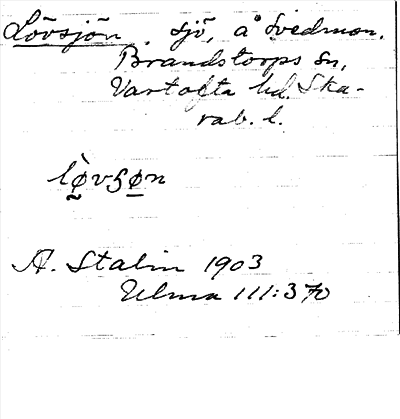 Lövsjön. sjö, å Svedmon.
Brandstorps sn,
Vartofta hd. Ska-
rab. l.
lø̀vʂøn
A. Stalin 1903
Ulma 111:370